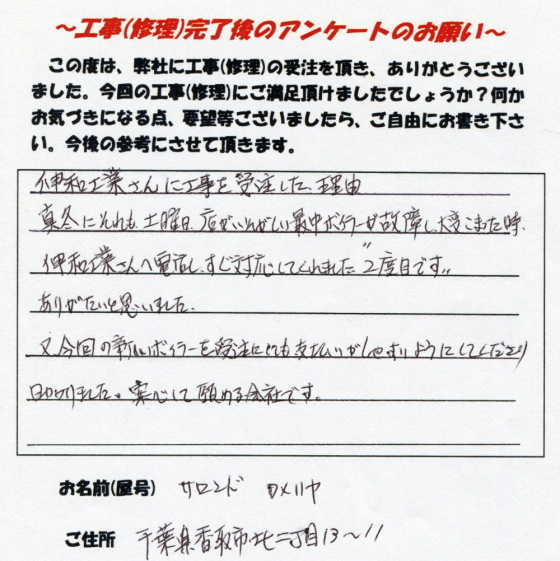 ～工事(修理)完了後のアンケートのお願い～
この度は、弊社に工事(修理)の受注を頂き、ありがとうござい
ました。今回の工事(修理)にご満足頂けましたでしょうか？何か
お気づきになる点、要望等ございましたら、ご自由にお書き下さ
い。今後の参考にさせて頂きます。
伊和工業さんに工事を受注した理由
真冬にそれも、土曜日、店がいそがしい最中ボイラーが故障し、大変こまった時、
伊和工業さんへ電話し、すぐ対応してくれました "2度目です"
ありがたいと思いました。
又今回の新しいボイラーを受注にも支払いがしやすいようにしてくださり
助かりました。安心して頼める会社です。
お名前(屋号) サロンド
ご住所 千葉県香取市北二丁目13～11